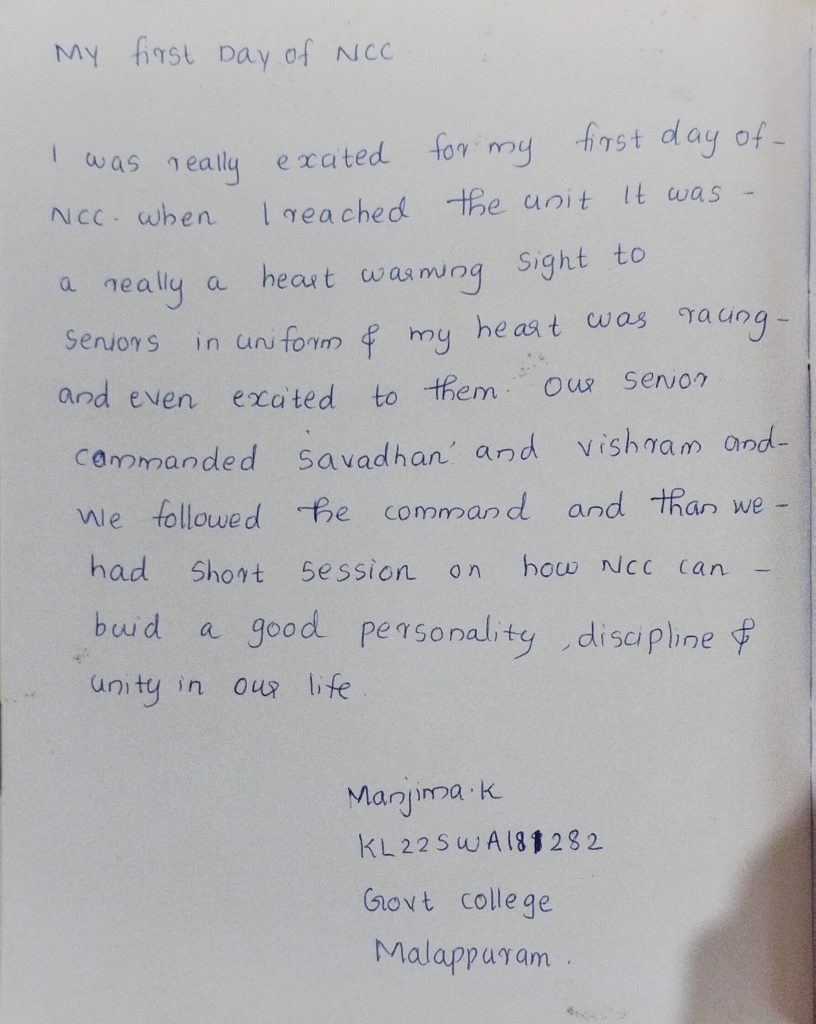 My first Day of NCC
I was really excited for my first day of -
NCC. when I reached the unit It was -
a really a heart warming sight to
seniors in uniform & my heart was racing -
and even excited to them. our senior
commanded savadhan' and vishram and-
we followed the command and than we -
had short session on how NCC can -
buid a good personality , discipline &
unity in our life.
Manjima.K
KL22SWA181282
Govt college
Malappuram.